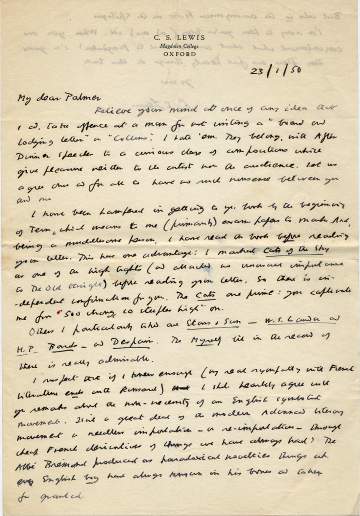 C. S. LEWIS
Magdalen College
OXFORD
23/1/50
My dear Palmer
Relieve your mind at once of any idea that
I cd. take offence at a man for not writing a "board and
lodging letter" or "Collins". I hate 'em. They belong, with After
Dinner speeches to a curious class of compositions which
give pleasure neither to the artist nor the audience. Let us
agree once and for all to have no such nonsense between you
and me
I have been hampered in getting to yr. book by the beginning
of Term, which means to me (primarily) exam papers to mark. And,
being a muddleheaded person, I have read the book before reading
your letter. This has one advantage: I marked Cats of the Sky
as one of the high lights (and attached an unusual importance
to The Old Knight) before reading your letter. So there is in-
dependent confirmation for you. The Cats are prime: you captivate
me from "500 strong to steeples high" on.
Others I particularly like are Stars & Sun — W.S. Landor and
H.P. and Despair. The Myself bit in the record of
there is really admirable.
I suspect that if I knew enough (my real sympathy with French
literature ends with Ronsard) I shd. heartily agree with
yr. remarks about the non-necessity of an English symbolist
movement. Isn't a great deal of the modern Advanced literary
movement a needless importation — or re-importation — through
cheap French derivatives of things we have always had? The
Abbé Bremond produced as paradoxical novelties things wh.
every English boy has always known in his bones and taken
for granted